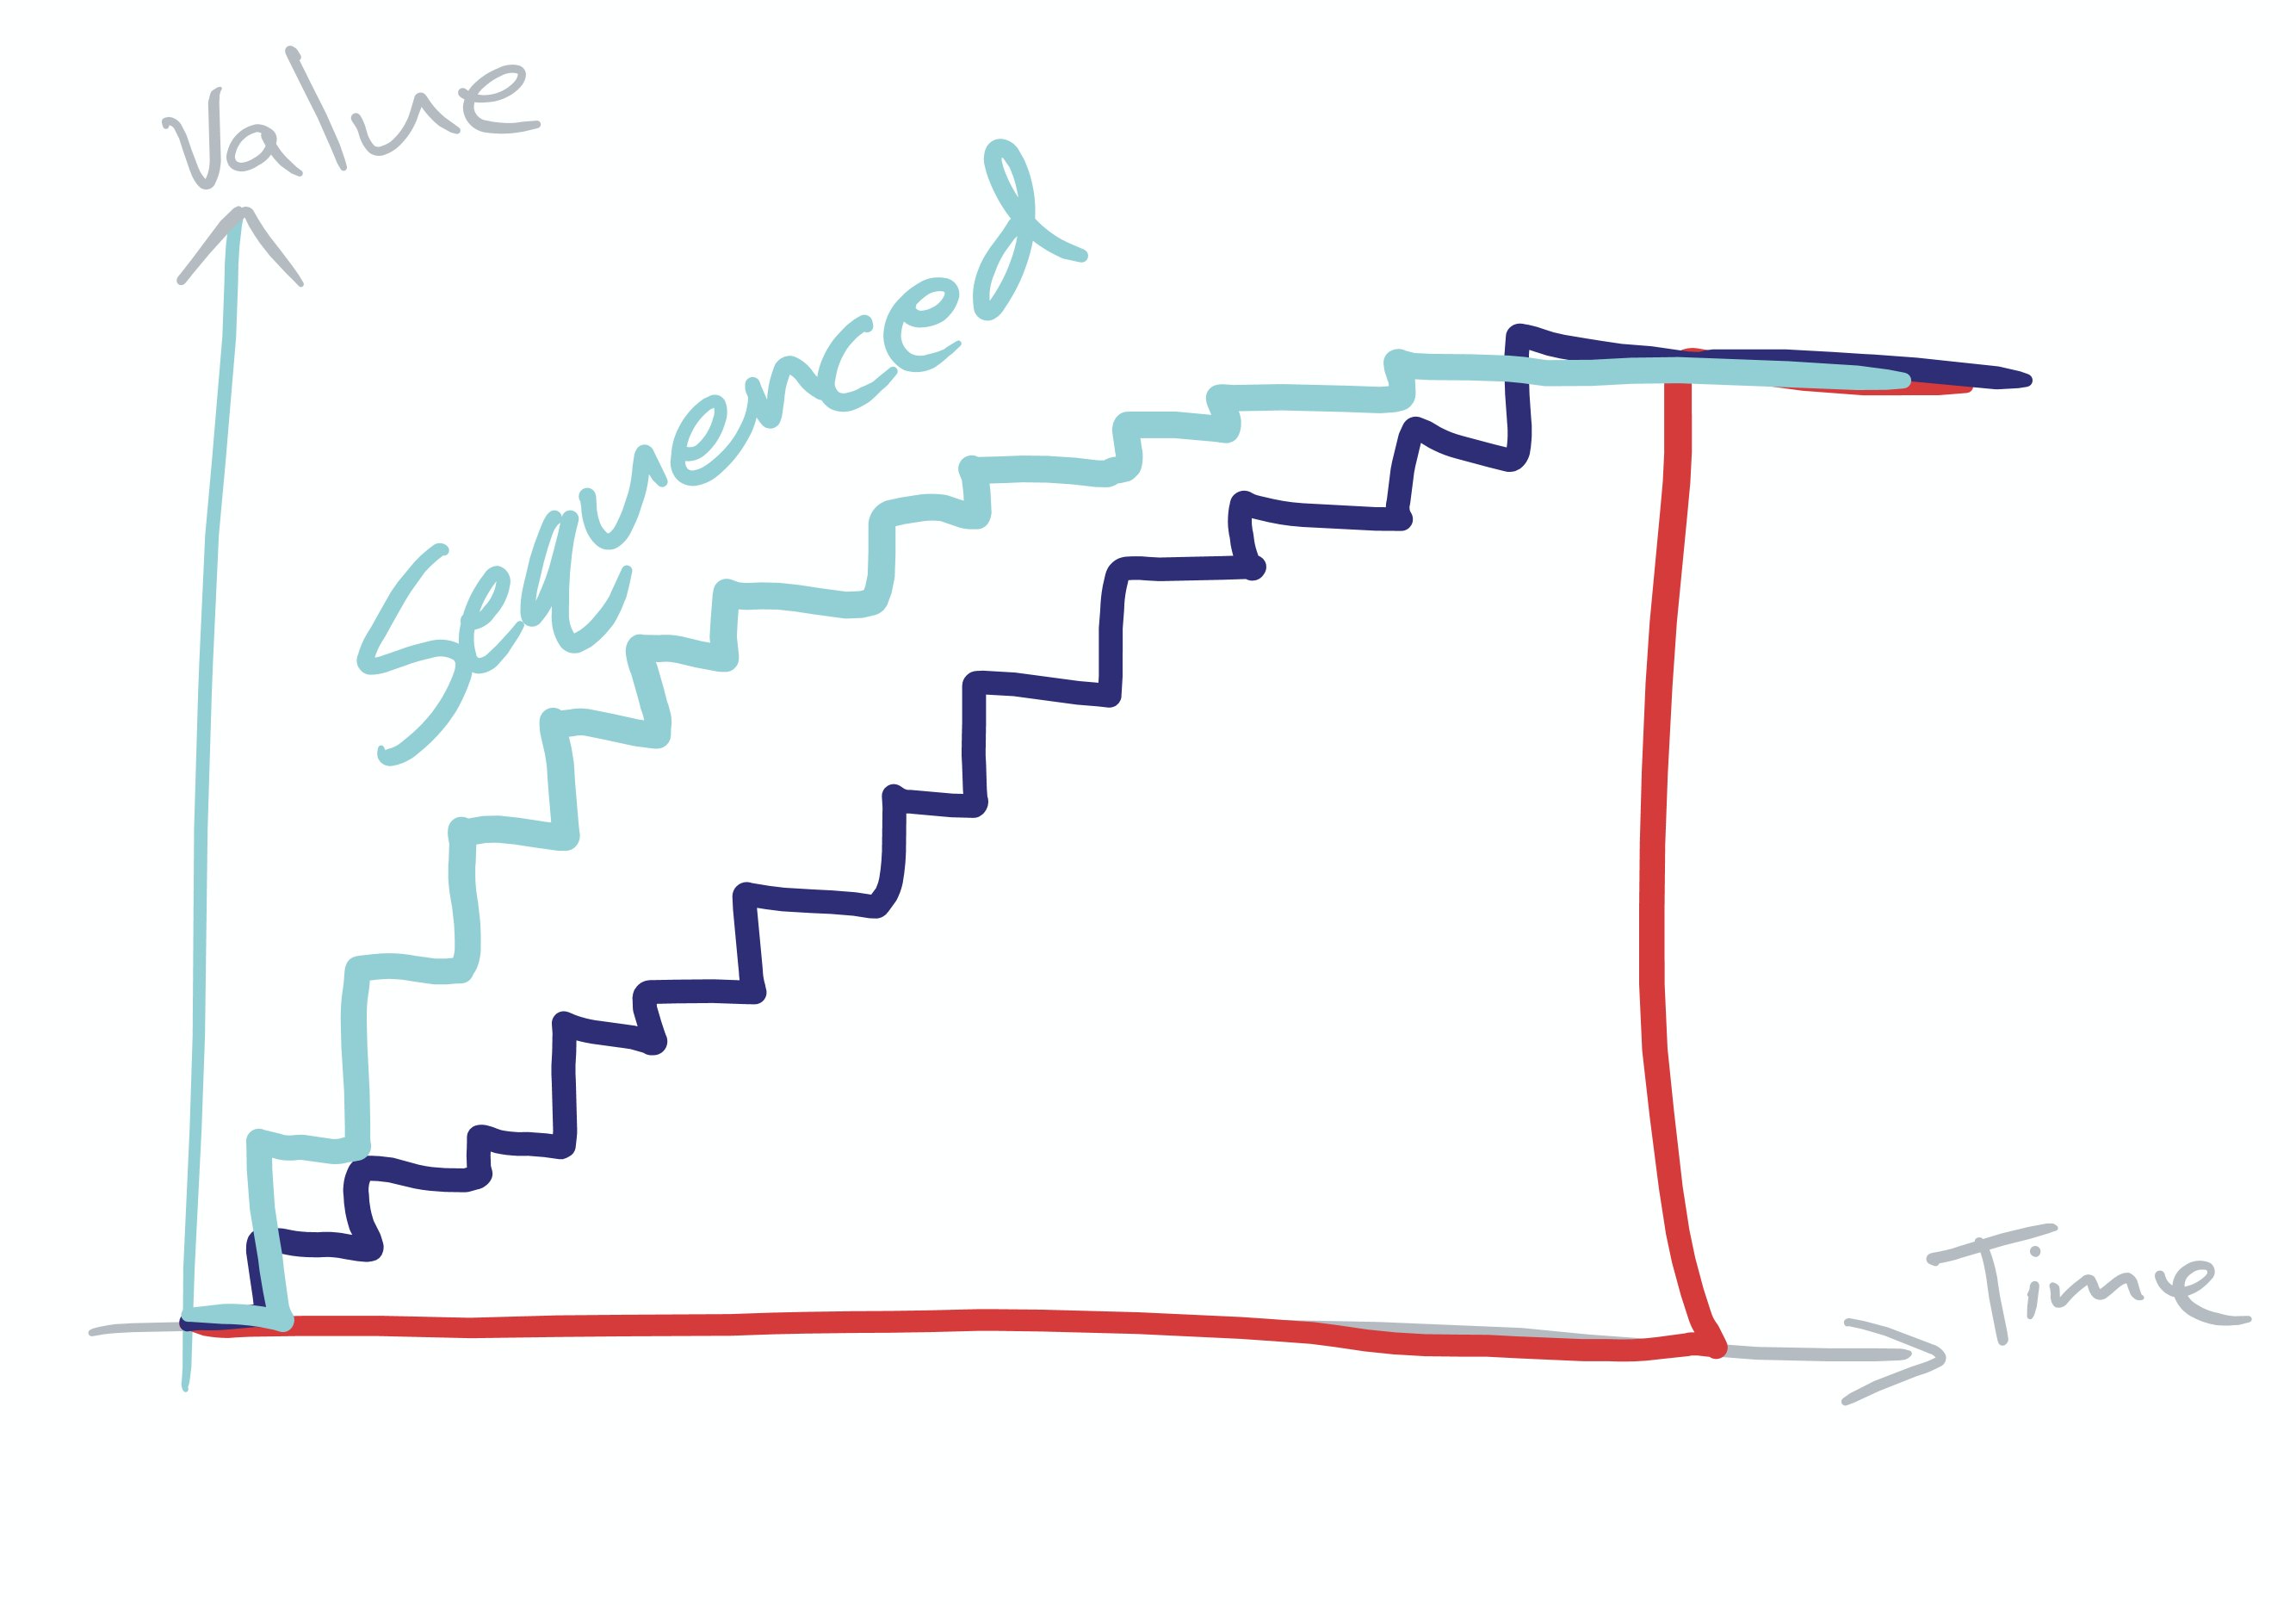 Value
Sequenced
Time